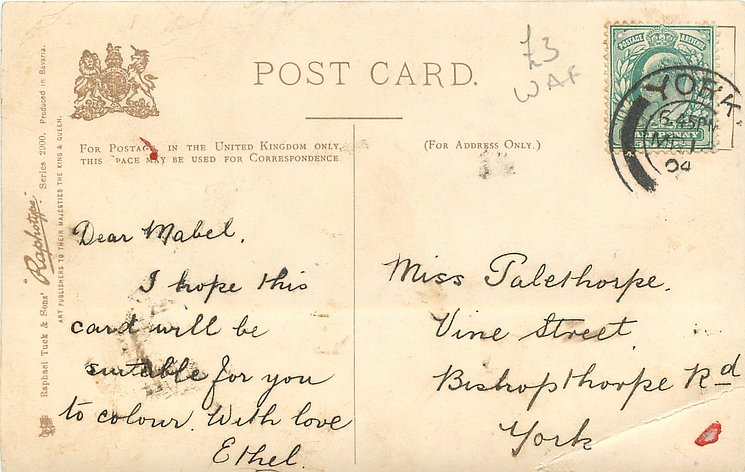 POST CARD.
£3
WAF
POSTAGE & REVENUE
HALFPENNY
YORK
5.45PM
MR 1
04
FOR POSTAGE IN THE UNITED KINGDOM ONLY,
THIS SPACE MAY BE USED FOR CORRESPONDENCE
(FOR ADDRESS ONLY.)
Dear Mabel.
I hope this
card will be
suitable for you
to colour. With love
Ethel.
Miss Palethorpe.
Vine Street
Bishopthorpe Rd
York
Raphael Tuck & Sons' "Raphotype" Series 2000. Produced in Bavaria.
ART PUBLISHERS TO THEIR MAJESTIES THE KING & QUEEN.